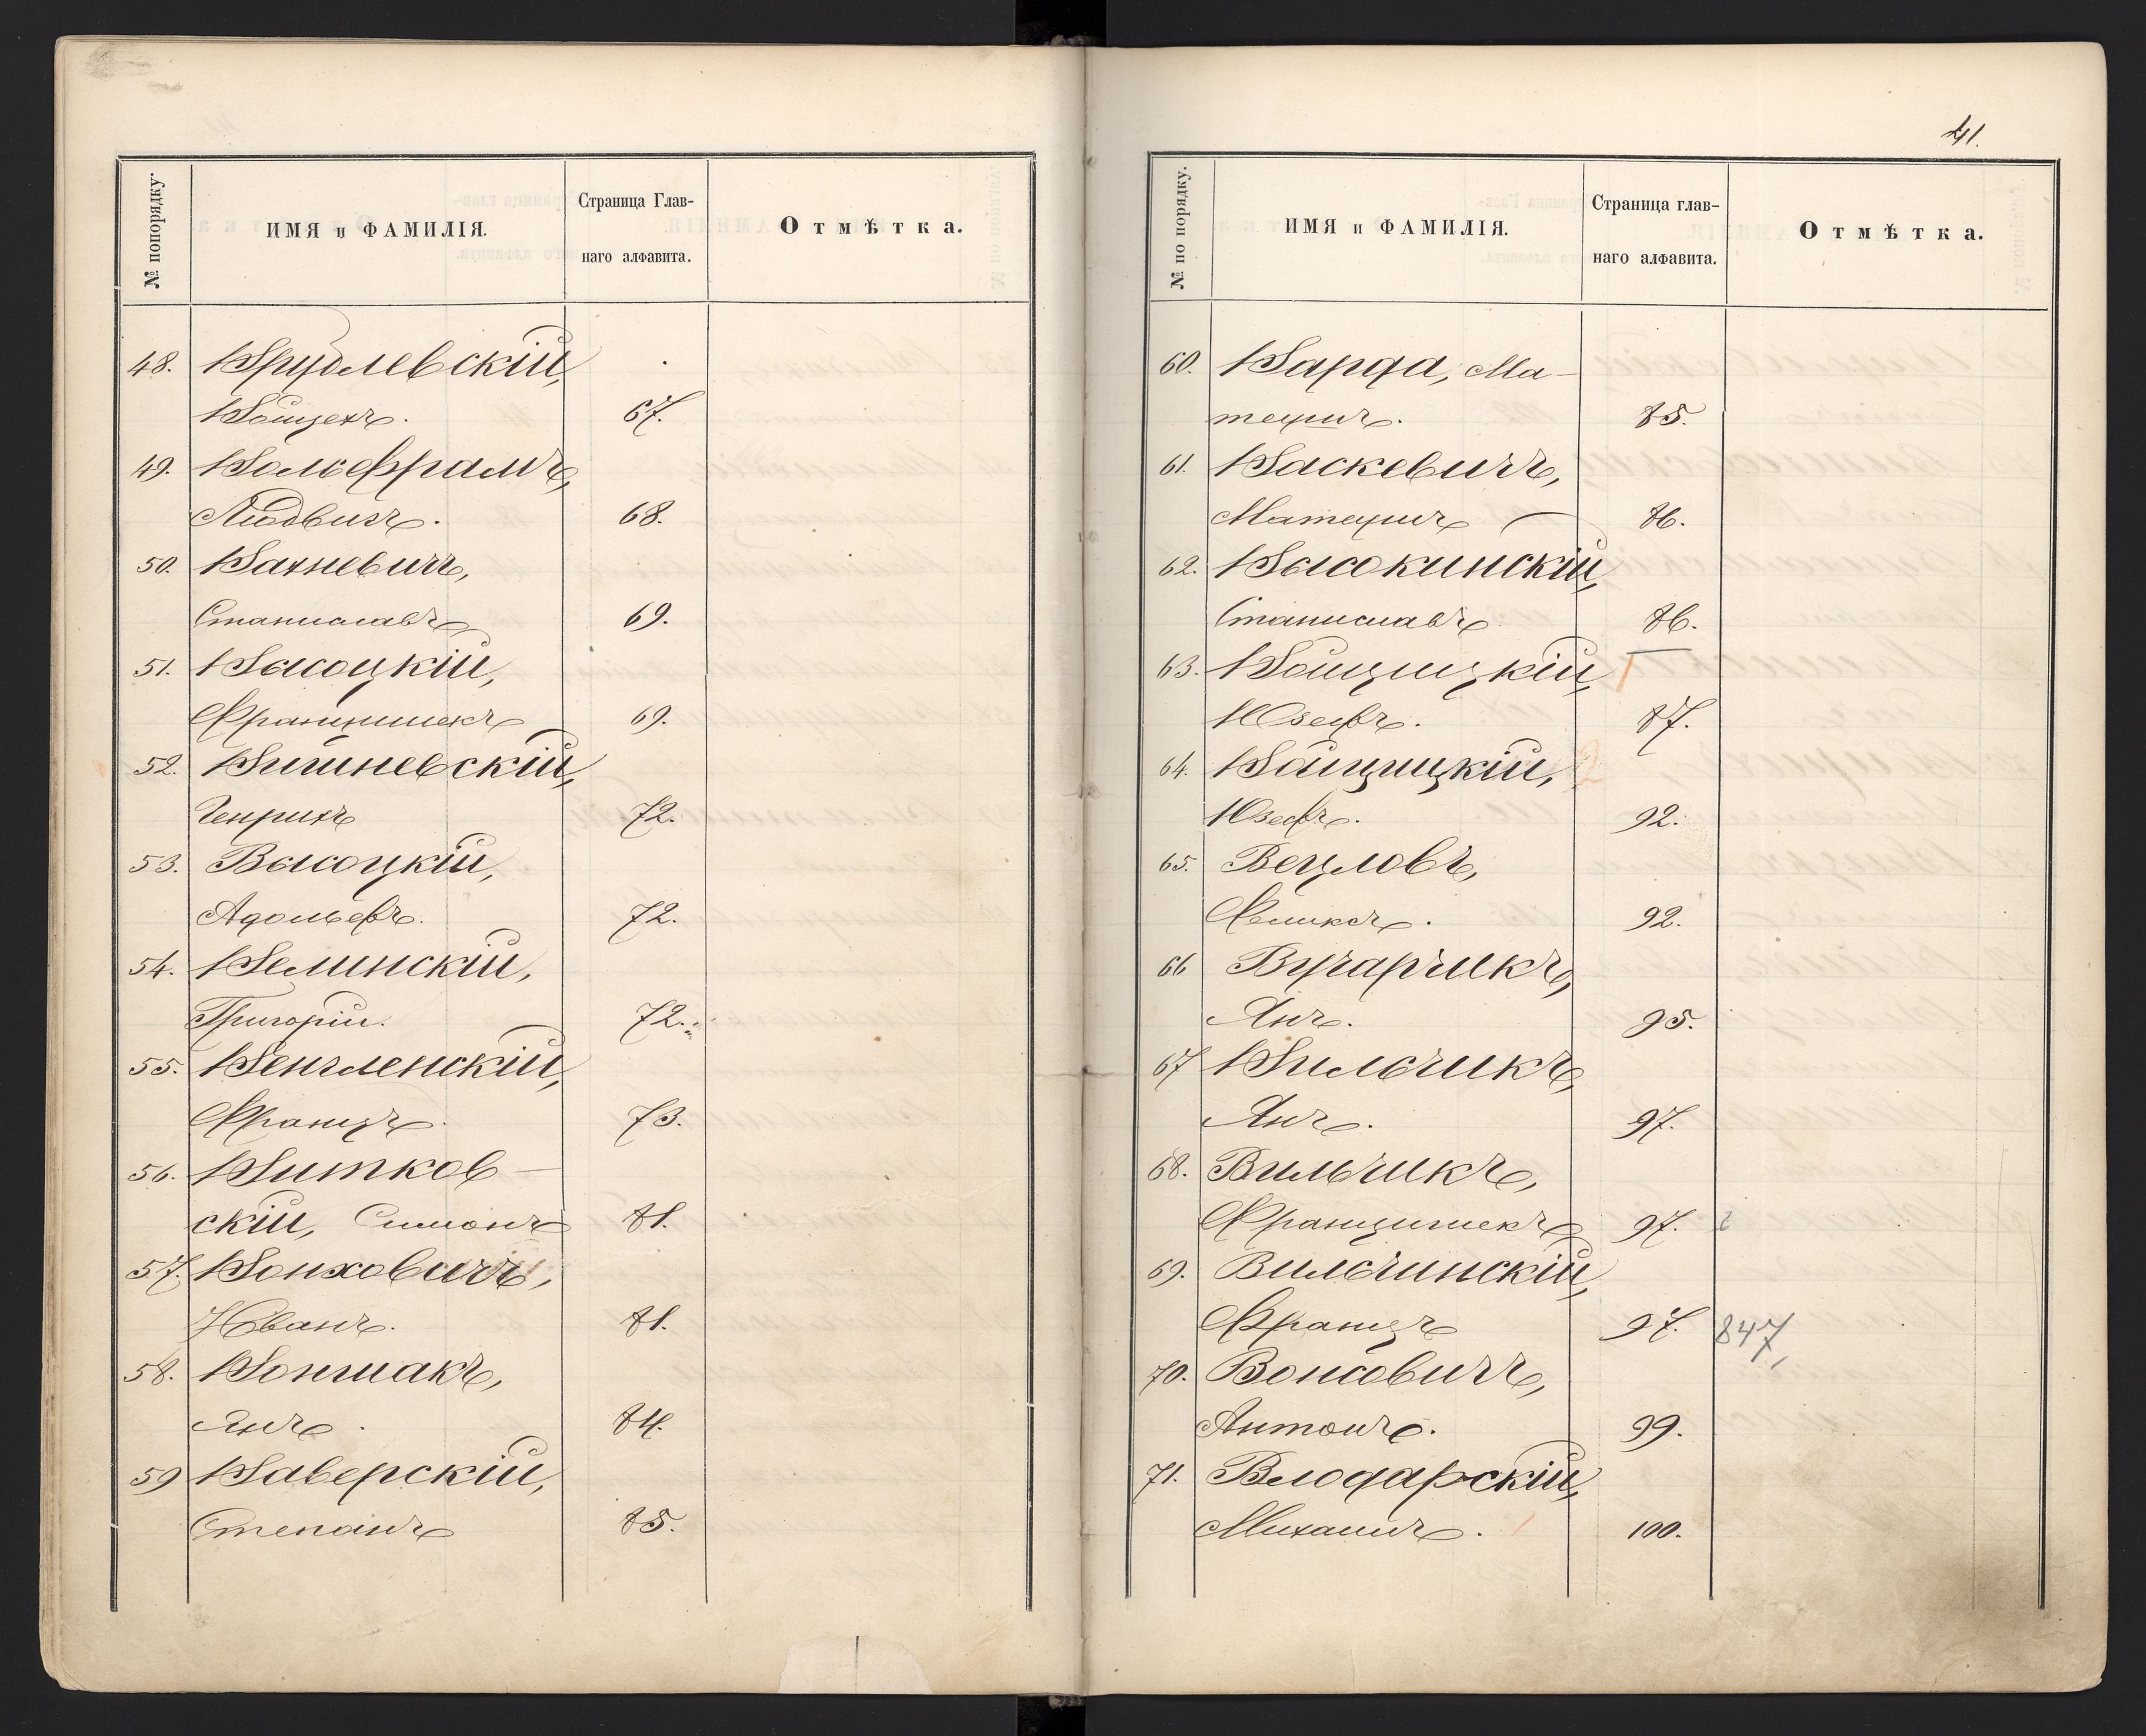 № попорядку.
ИМЯ и ФАМИЛІЯ.
Страница Глав-
наго алфавита.
Отмѣтка.
48. Врублевскій,
Войцехъ. 67.
49. Вольфрамъ,
Людвигъ. 68.
50. Вахневичъ,
Станиславъ 69.
51. Высоцкій,
Францишекъ 69.
52. Вишневскій,
Генрихъ 72.
53. Высоцкій,
Адольфъ. 72.
54. Велинскій,
Григорій. 72.
55. Венгленскій,
Францъ. 73.
56. Витков-
скій, Симонъ 81.
57. Вонховичъ,
Иванъ. 81.
58. Воншакъ,
Янъ. 84.
59 Ваверскій,
Степанъ 85.
41.
№ по порядку.
ИМЯ и ФАМИЛІЯ.
Страница глав-
наго алфавита.
Отмѣтка.
60. Варда, Ма-
теушъ. 85.
61. Васкевичъ,
Матеушъ 86.
62. Высокинскій,
Станиславъ. 86.
63. Войцицкій, 1
Юзефъ. 87.
64. Войцицкій, 2
Юзефъ. 92.
65. Вецловъ,
Феликсъ. 92.
66 Вучарчикъ,
Янъ. 95.
67 Вильчикъ,
Янъ. 97.
68. Вильчикъ,
Францишекъ 97.
69. Вильчинскій,
Францъ 97. 847,
70. Вонсовичъ,
Антонъ. 99.
71. Влодарскій,
Михаилъ. 100.